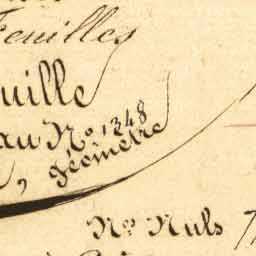 Feuilles
uille
au No 1348
géomètre
Nos Nuls